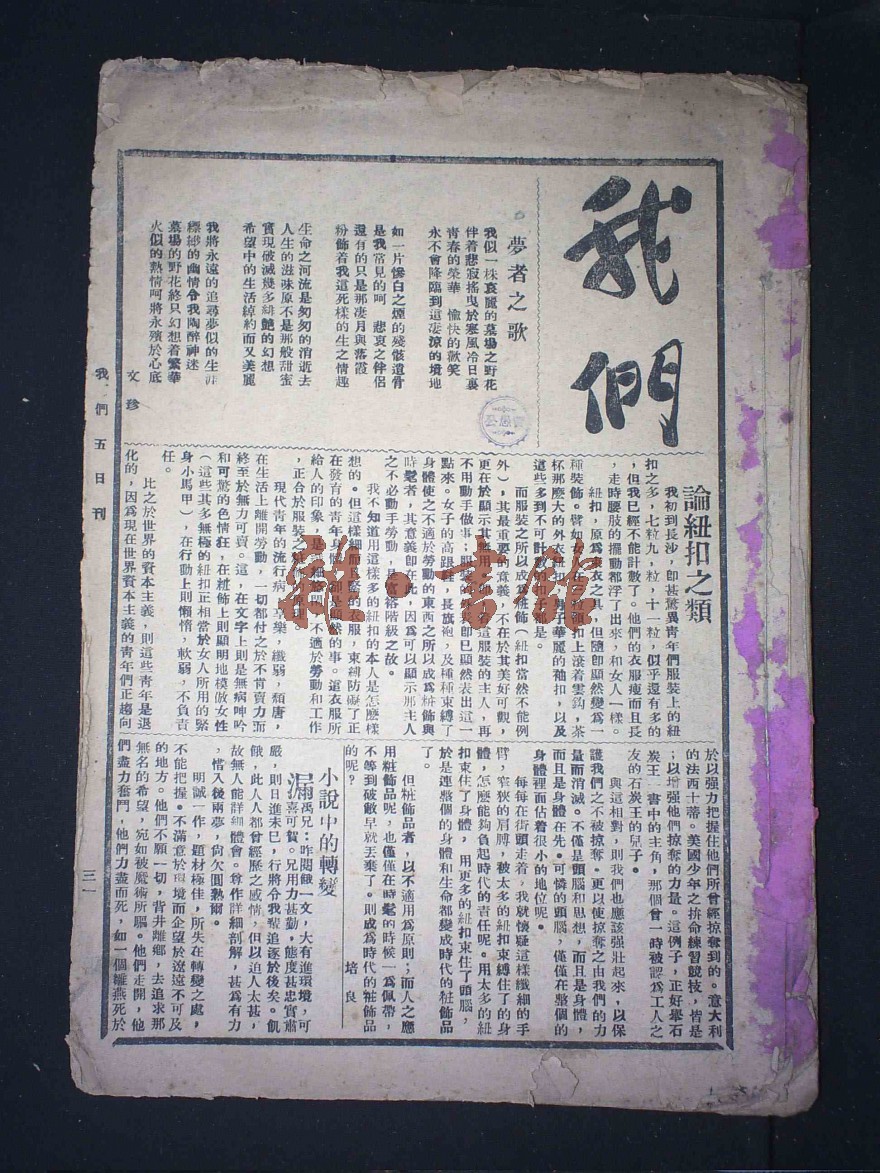 我們
夢者之歌
我似一株哀麗的墓場之野花
伴着悲寂搖曳於寒風冷日裏
青春的榮華　愉快的歡笑
永不會降臨到這凄涼的墳地
如一片慘白之煙的殘骸遺骨
是我常見的呵　悲哀之伴侶
還有的只是那凄月與落霞
粉飾着我這死樣的生之情趣
生命之河流是匆匆的消逝去
人生的滋味原不是那般甜蜜
實現破滅幾多緋艷的幻想
希望中的生活綽約而又美麗
我將永遠的追尋夢似的生涯
縹緲的幽情令我陶醉神迷
墓場的野花終只幻想着繁華
火似的熱情呵將永殯於心底
文珍
論紐扣之類
我初到長沙，卽甚驚異青年們服裝上的紐
扣之多，七粒九，粒，十一粒，似乎還有多的
，但我已經不能計數了。他們的衣服瘦而且長
，走時腰肢的擺動都浮了出來，和女人一樣。
紐扣，原爲扣衣之具，但隨卽顯然變爲一
種裝飾。譬如女人在三粒領扣上滾着雲鈎，茶
杯那麼大的外衣紐扣，男子華麗的袖扣，以及
這些多到不可計數的扣子都是。
而服裝之所以成爲粧飾（紐扣當然不能例
外），其最重要的意義，不在於其美好可觀，
更在於顯示其無用，卽穿着這服裝的主人，再
不用動手做事；服裝的外表卽已顯然表出這一
點來。女子的高跟鞋，長旗袍，及種種束縛了
身體使之不適於勞動的東西之所以成爲粧飾與
時髦者，其意義卽在此，因爲可以顯示那主人
之不必動手勞動，是富裕階級之故。
我不知道用這樣多的紐扣的本人是怎麼樣
想的。但這樣細而長盤的衣服，束縛防礙了正
在發育的青年身體，都是顯然的事。這衣服所
給人的印象，是
不適於勞動和工作
，正合於服裝之
的原理。
現代青年的流行病，享樂，纖弱，頹唐，
在生活上離開勞動，一切都付之於不肯賣力而
終至於無力可賣。這，在文字上則是無病呻吟
和可驚的色情狂，在粧飾上則顯明地模倣女性
（這些其多無極的紐扣正相當於女人所用的緊
身小馬甲），在行動上則懶惰，軟弱，不負責
任。
比之於世界的資本主義，則這些青年是退
化的，因爲現在世界資本主義的青年們正趨向
於以强力把握住他們所曾經掠奪到的。意大利
的法西十蒂。美國少年之拚命練習競技，皆是
；以增强他們掠奪的力量。這例子，正好舉石
炭王一書中的主角，那個曾一時被認爲工人之
友的石炭王的兒子。
與這相對，則我們也應該强壯起來，以保
護我們之不被掠奪。更以使掠奪之由我們的力
量而消滅。不僅是頭腦和思想，而且是身體，
而且是身體在先。可憐的頭腦，僅僅在整個的
身體裡面佔着很小的地位呢。
每每在街頭走着，我就懷疑這樣纖細的手
臂，窄狹的肩膊，被太多的紐扣束縛住了的身
體，怎麼能夠負起時代的責任呢。用太多的紐
扣束住了身體，用更多的紐扣束住了頭腦，
於是連整個的身體和生命都變成時代的粧飾品
了。
但粧飾品者，以不適用爲原則；而人之應
用粧飾品呢，也僅僅在時髦的時候一爲佩帶，
不等到破敝早就丟棄了。則成爲時代的粧飾品
的呢？
培良
小說中的轉變
漏禹兄：昨閱餓一文，大有進環境，可
喜可賀。兄用力甚勤，態度甚忠實肅
嚴，則日進未已，行將令我輩追逐於後矣。飢
餓，此人人都曾經歷之感情，但以迫人太甚，
故無人能詳細體會。尊作詳細剖解，甚爲有力
，惜入後兩夢，尙欠圓熟爾。
明誠一作，題材極佳，所失在轉變之處，
不能把握。不滿意於環境而企望於遼遠不可及
的地方。他們不願一切，背井離鄉，去追求那
無名的希望，宛如被魔術所騙。他們走開，他
們盡力奮鬥，他們力盡而死，如一個雛燕死於
我們五日刊
三一